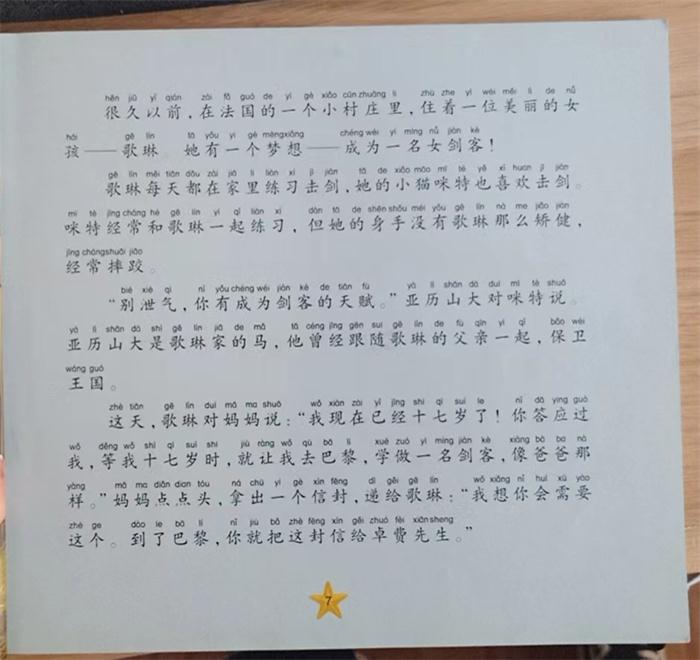 hěn jiǔ yǐ qián zài fǎ guó de yí gè xiǎo cūn zhuāng lǐ zhù zhe yí wèi měi lì de nǚ
很久以前，在法国的一个小村庄里，住着一位美丽的女
hái gē lín tā yǒu yí gè mèng xiǎng chéng wéi yì míng nǚ jiàn kè
孩——歌琳 她有一个梦想——成为一名女剑客！
gē lín měi tiān dōu zài jiā lǐ liàn xí jī jiàn tā de xiǎo māo mī tè yě xǐ huan jī jiàn
歌琳每天都在家里练习击剑，她的小猫咪特也喜欢击剑。
mī tè jīng cháng hé gē lín yì qǐ liàn xí dàn tā de shēn shǒu méi yǒu gē lín nà me jiǎo jiàn
咪特经常和歌琳一起练习，但她的身手没有歌琳那么矫健，
jīng cháng shuāi jiāo
经常摔跤。
bié xiè qì nǐ yǒu chéng wéi jiàn kè de tiān fù yà lì shān dà duì mī tè shuō
“别泄气，你有成为剑客的天赋。”亚历山大对咪特说。
yà lì shān dà shì gē lín jiā de mǎ tā céng jīng gēn suí gē lín de fù qīn yì qǐ bǎo wèi
亚历山大是歌琳家的马，他曾经跟随歌琳的父亲一起，保卫
wáng guó
王国。
zhè tiān gē lín duì mā ma shuō wǒ xiàn zài yǐ jīng shí qī suì le nǐ dā ying guò
这天，歌琳对妈妈说：“我现在已经十七岁了！你答应过
wǒ děng wǒ shí qī suì shí jiù ràng wǒ qù bā lí xué zuò yì míng jiàn kè xiàng bà ba nà
我，等我十七岁时，就让我去巴黎，学做一名剑客，像爸爸那
yàng mā ma diǎn diǎn tóu ná chū yí gè xìn fēng dì gěi gē lín wǒ xiǎng nǐ huì xū yào
样。”妈妈点点头，拿出一个信封，递给歌琳：“我想你会需要
zhè ge dào le bā lí nǐ jiù bǎ zhè fēng xìn gěi zhuó fèi xiān sheng
这个。到了巴黎，你就把这封信给卓费先生。”
7